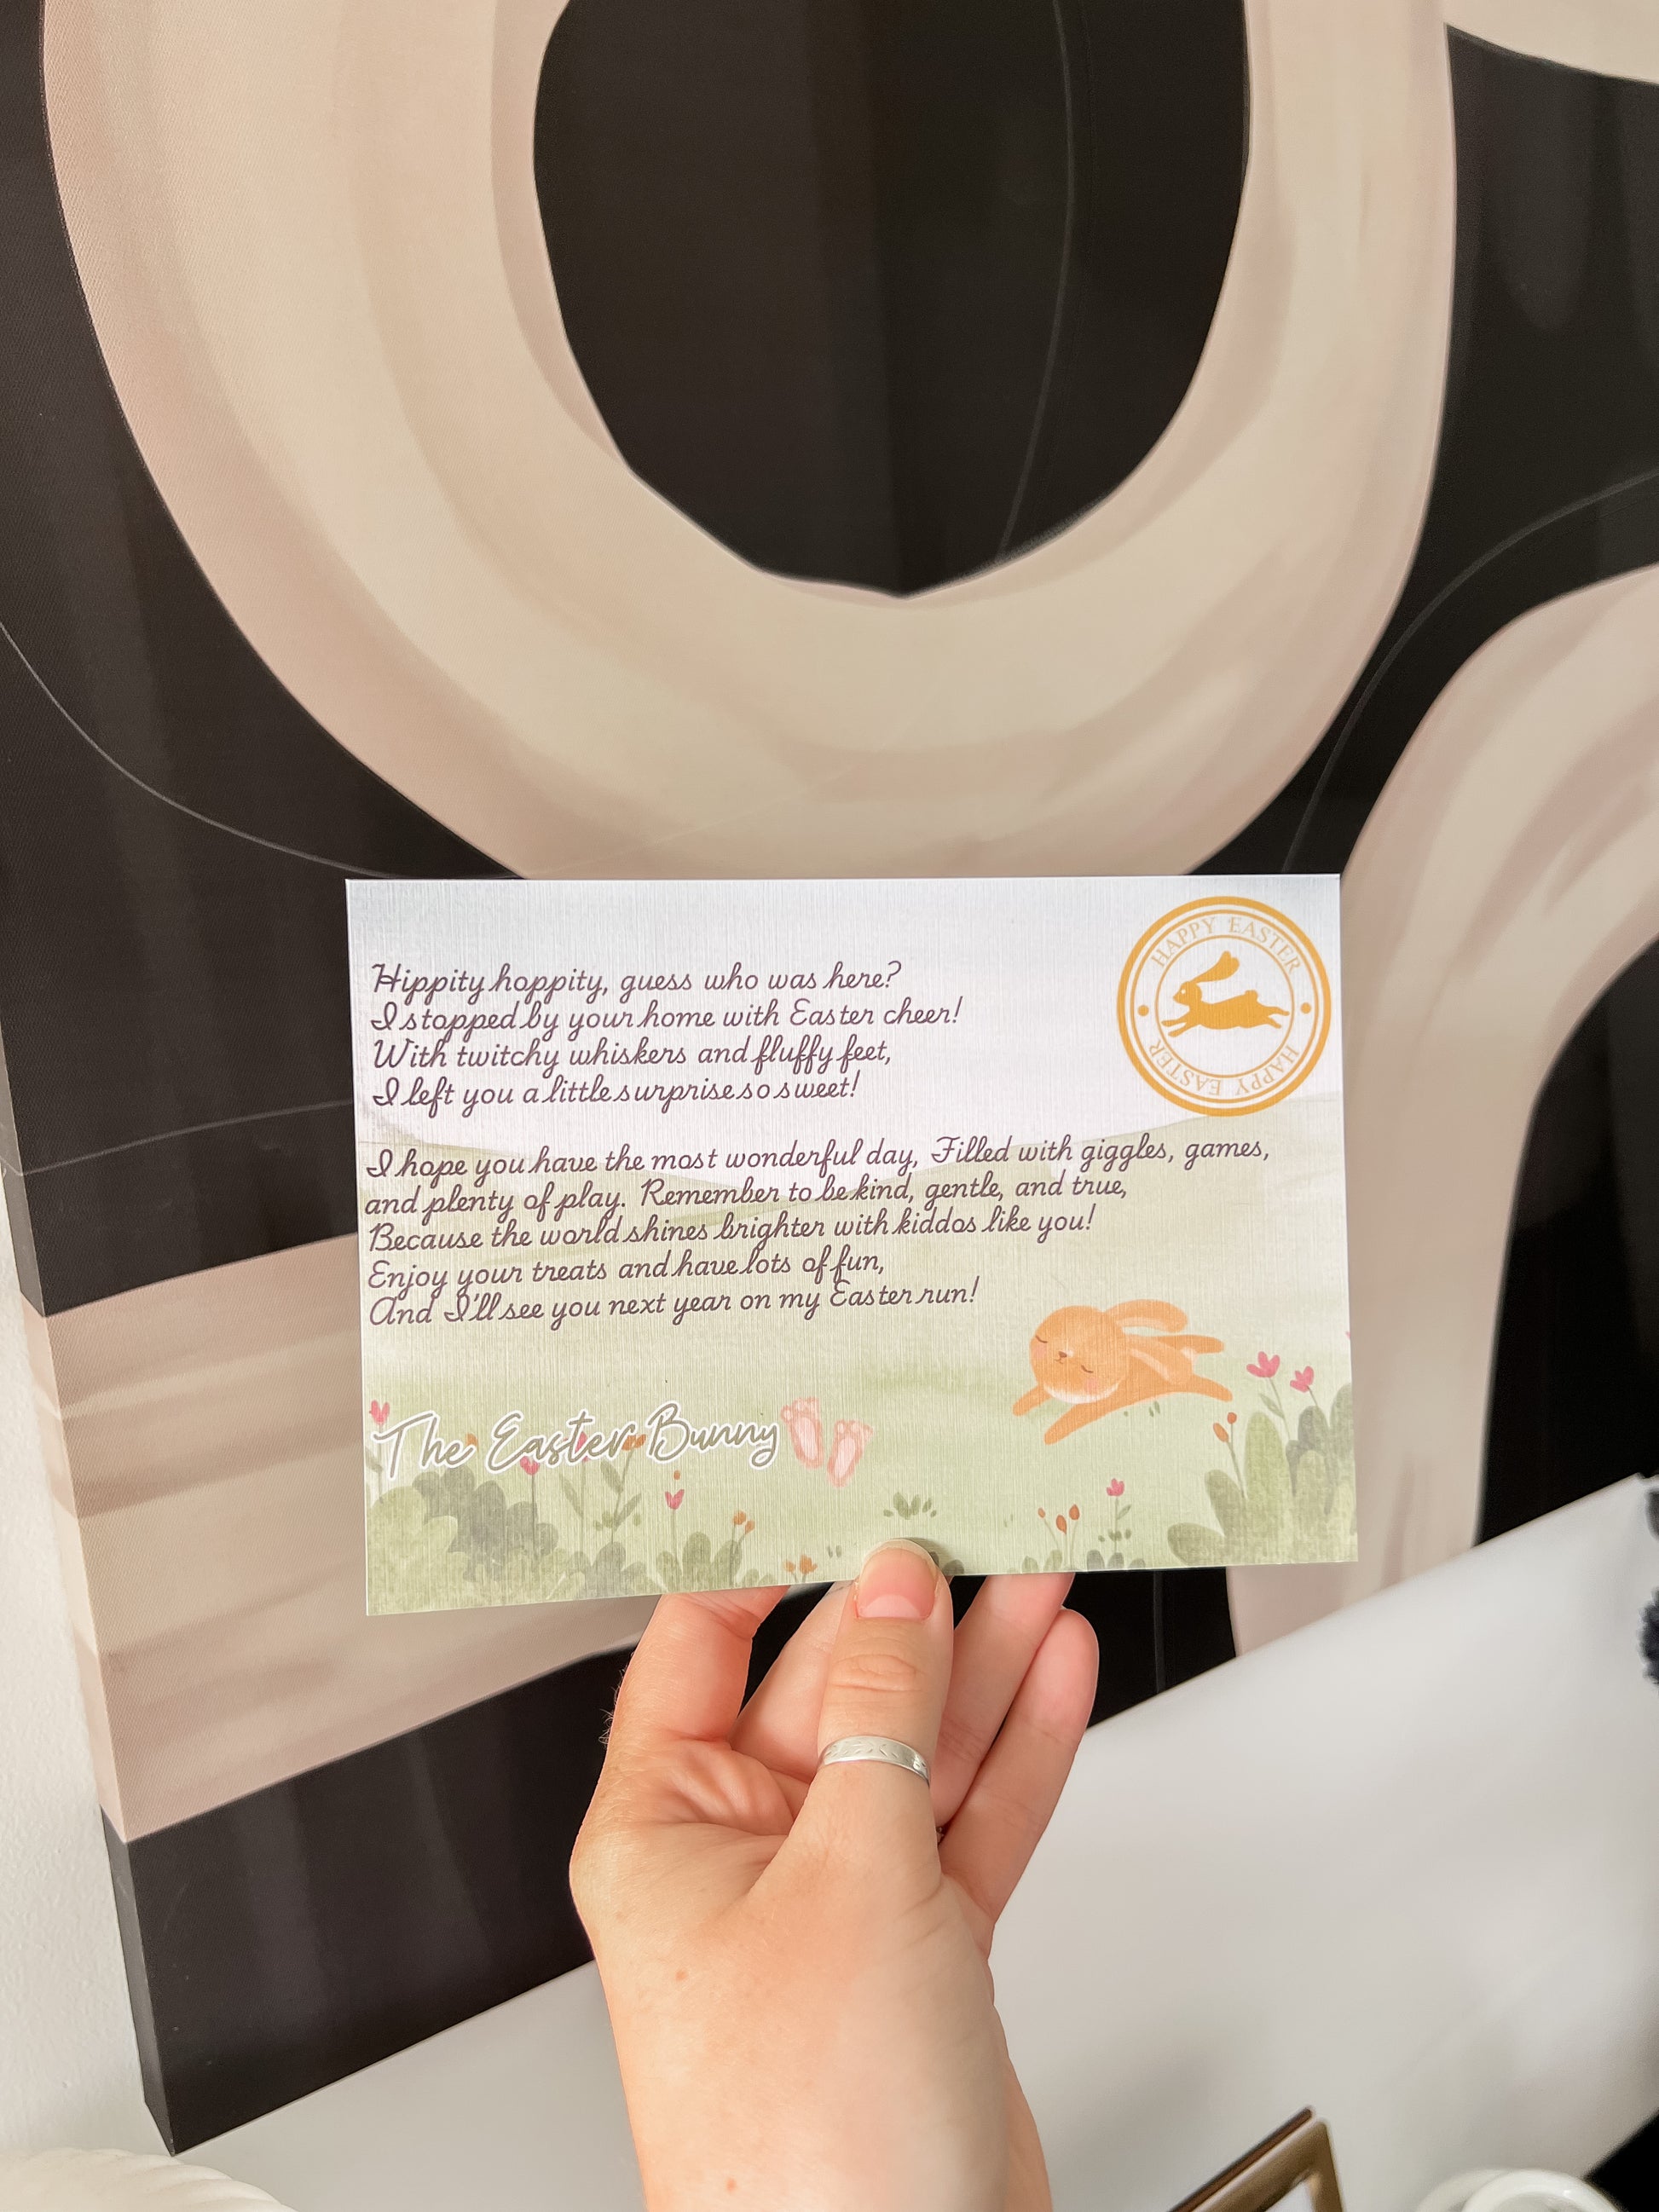 Hippity hoppity, guess who was here?
I stopped by your home with Easter cheer!
With twitchy whiskers and fluffy feet,
I left you a little surprise so sweet!
I hope you have the most wonderful day, Filled with giggles, games,
and plenty of play. Remember to be kind, gentle, and true,
Because the world shines brighter with kiddos like you!
Enjoy your treats and have lots of fun,
And I'll see you next year on my Easter run!
The Easter Bunny
HAPPY EASTER
HAPPY EASTER